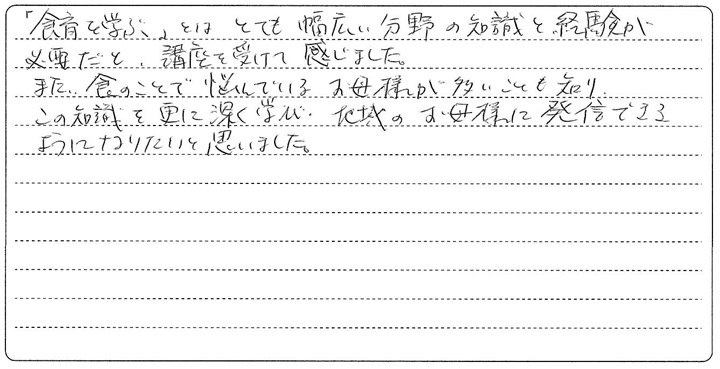 「食育を学ぶ、」とは とても 幅広い 分野の知識と経験が
必要だと、講座を受けて 感じました。
また、食のことで 悩んでいる お母様が多いことも 知り、
この知識を 更に深く学び、地域の お母様に 発信できる
ようになりたいと思いました。